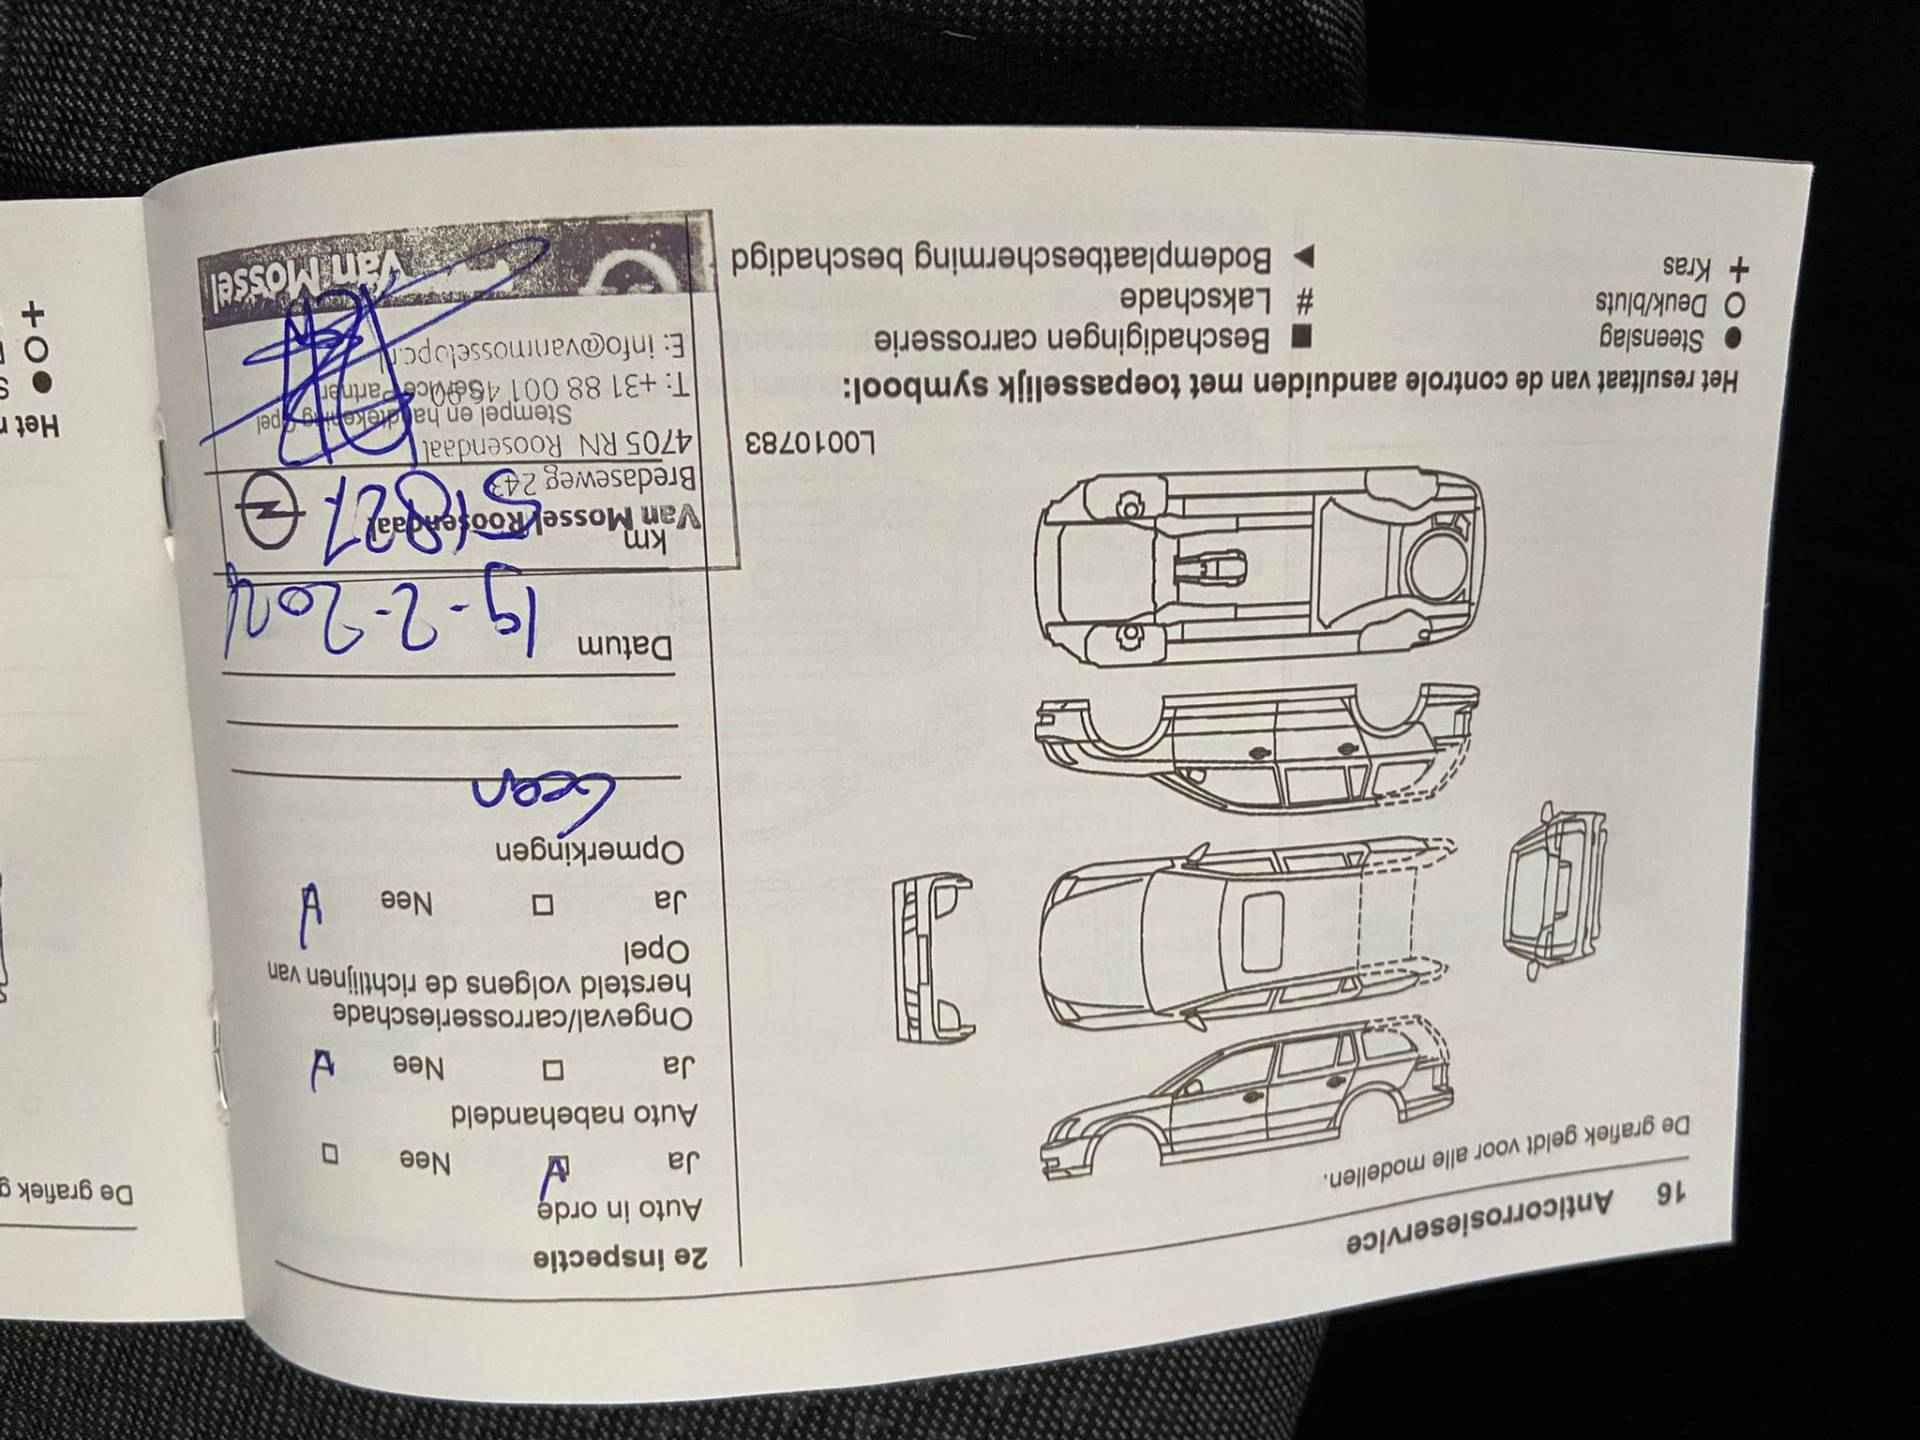 16 Anticorrosieservice
De grafiek geldt voor alle modellen.
L0010783
Het resultaat van de controle aanduiden met toepasselijk symbool:
● Steenslag
O Deuk/bluts
+ Kras
■ Beschadigingen carrosserie
# Lakschade
▲ Bodemplaatbescherming beschadigd
2e inspectie
Auto in orde
Ja Nee
Auto nabehandeld
Ja Nee
Ongeval/carrosserieschade
hersteld volgens de richtlijnen van
Opel
Ja Nee
Opmerkingen
Geen
Datum 19-2-2021
km
Van Mossel Roosendaal
Bredaseweg 243
4705 RN Roosendaal
Stempel en handtekening Opel
Service Partner
T: +31 88 001
E: info@vanmosselopel.nl
Van Mossel
De grafiek
Het
●
O
+